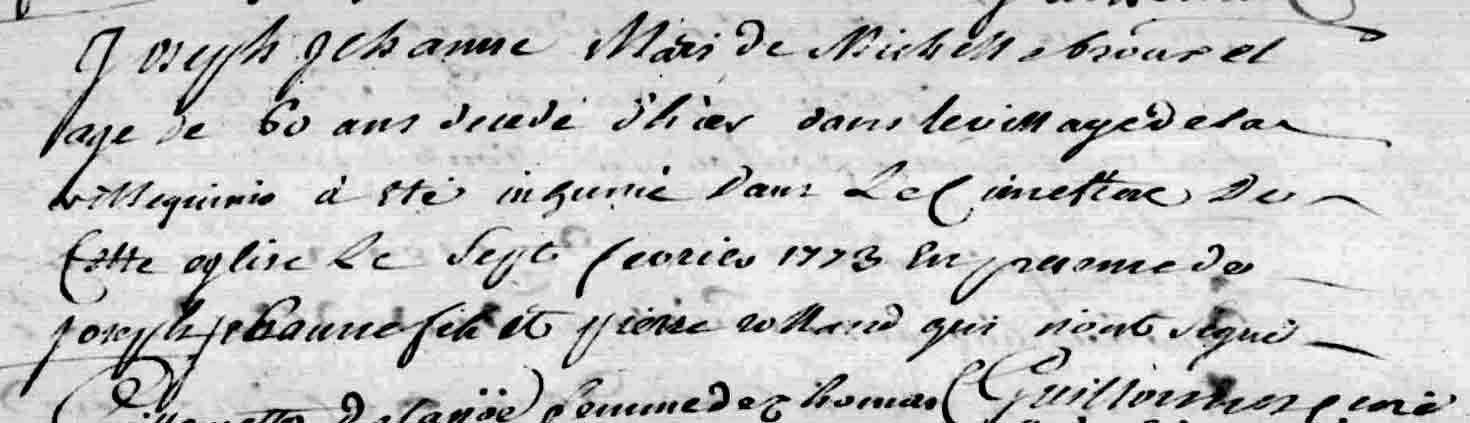 Joseph Jehanne Mari de Michelle brourel
age de 60 ans decedé d'hier dans le village de la
villequinio à été inhumé dans Le Cimettre De
Cette eglise Le Sept fevrier 1773 En presence de
joseph jehanne fils et pierre rolland qui n'ont signé
Delanöe femme de thomas Guillemer curé